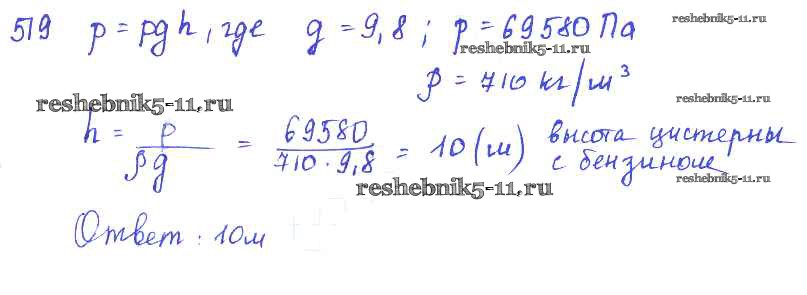 519 p = ρg h, где g = 9,8; p = 69580 Па
reshebnik5-11.ru
reshebnik5-11.ru
ρ = 710 кг/м³
reshebnik5-11.ru
reshebnik5-11.ru
h = p/ρg = 69580/710·9,8 = 10 (м) высота цистерны
с бензином
reshebnik5-11.ru
reshebnik5-11.ru
Ответ: 10м